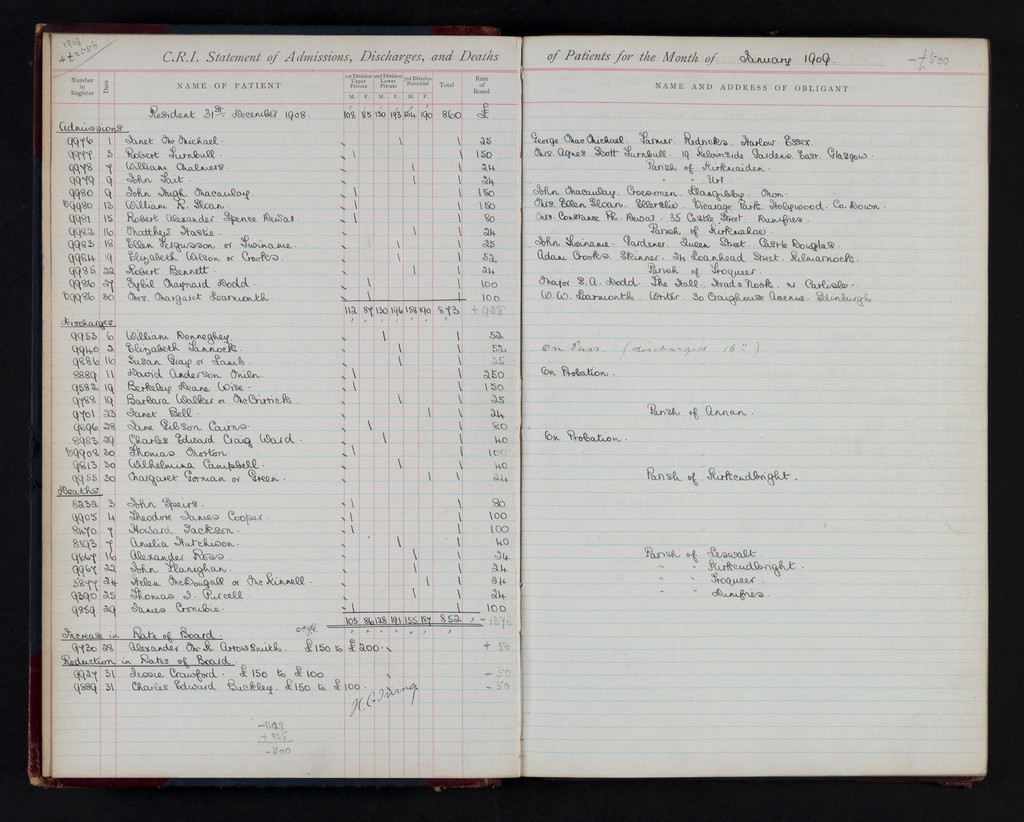 1908
+£2556
C.R.I. Statement of Admissions, Discharges, and Deaths of Patients for the Month of January 1909 -£500
Number in Register Date NAME OF PATIENT 1st Division Upper Private M. F. 2nd Division Lower Private M. F. 3rd Division Parochial M. F. Total Rate of Board NAME AND ADDRESS OF OBLIGANT
Resident 31st December 1908. 108 85 130 193 154 190 860 £
Admissions
9976 1 Janet McMichael 1 1 25 George MacMichael. Farmer. Redricks. Harlow. Essex
9977 5 Robert Turnbull 1 1 150 Mrs. Agnes Scott Turnbull. 19 Kelvinside Gardens. East. Glasgow.
9978 7 William Chalmers 1 1 24 Parish of Kirkmaiden.
9979 9 John Tait 1 1 24 " " Urr.
9980 9 John Hugh Macaulay. 1 1 150 John Macaulay. Llangibby. Mon.
b9980 13 William R. Sloan. 1 1 150 Mrs. Ellen Sloan. Ellerslie. Vicarage Park. Holywood. Co. Down.
9981 15 Robert Alexander Spence Dewar 1 1 80 Mrs. Constance Dewar. 35 Castle Street. Dumfries.
9982 16 Matthew Hastie 1 1 24 Parish of Kirkmahoe.
9983 18 Ellen Fergusson or Swiname. 1 1 25 John Swiname. Gardener. Queen Street. Castle Douglas.
9984 19 Elizabeth Wilson or Crooks. 1 1 52 Adam Crooks. Skinner. 24 Loanhead Street. Kilmarnock.
9985 22 Robert Bennett. 1 1 24 Parish of Troqueer.
9986 27 Sybil Maynard Dodd. 1 1 100 Major S.A. Dodd. The Hall. Heads Nook. nr Carlisle.
b9986 30 Mrs. Margaret Learmonth 1 1 100 W.W. Learmonth. Writer. 30 Craighouse Avenue. Edinburgh
112 87 130 196 158 190 873 +928
Discharges
9953 6 William Donneghey 1 1 52
9940 2 Elizabeth Tannock. 1 1 52 On Pass. (discharged 16th)
9886 16 Susan Gray or Lamb. 1 1 25
8889 11 David Anderson Miln. 1 1 250 On Probation.
9582 19 Berkeley Deane Wise. 1 1 150
9788 19 Barbara Walker or McCrirrick. 1 1 25
9701 23 Janet Bell. 1 1 24 Parish of Annan.
9896 28 Jane Gibson Cairns 1 1 80
8983 29 Charles Edward Craig Ward. 1 1 40 On Probation.
b9908 30 Thomas Morton 1 1 100
9813 30 Wilhelmina Campbell. 1 1 40
9955 30 Margaret Gorman or Green. 1 1 24 Parish of Kirkcudbright.
Deaths
8232 3 John Speirs. 1 1 80
9905 4 Theodore James Cooper 1 1 100
8470 7 Howard Jackson. 1 1 100
8193 7 Amelia Hutchison. 1 1 40
9667 16 Alexander Ross 1 1 24 Parish of Leswalt.
9967 22 John Flanighan. 1 1 24 " " Kirkcudbright.
5877 24 Helen McDougall or McKinnell. 1 1 24 " " Troqueer.
9390 25 Thomas J. Purcell. 1 1 24 " " Dumfries.
9859 29 James Crombie. 1 1 100
105 86 128 191 155 187 852 -1378
Increase in Rate of Board.
9730 28 Alexander McK. Arrowsmith. £150 to £200. +50
Reduction in Rates of Board.
9927 31 Jessie Crawford. £150 to £100 -50
9889 31 Charles Edward Buckley. £150 to £100. -50
-1428
+928
-500